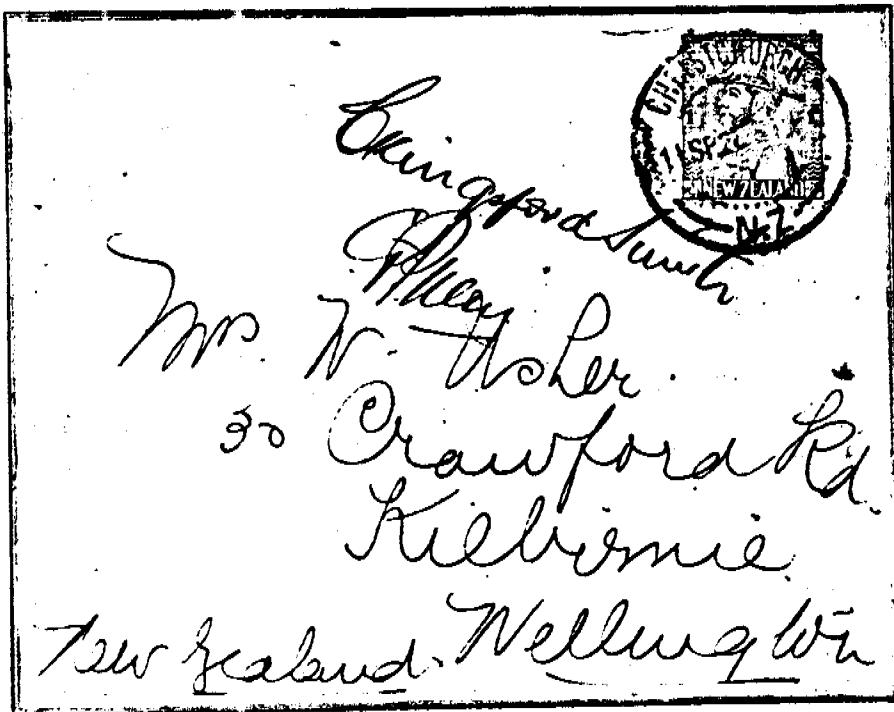 CHRISTCHURCH
11 SP 28
NEW ZEALAND
N.Z.
CKingsford Smith
Mrs. W. Usher.
30 Crawford Rd.
Kilbirnie.
New Zealand. Wellington